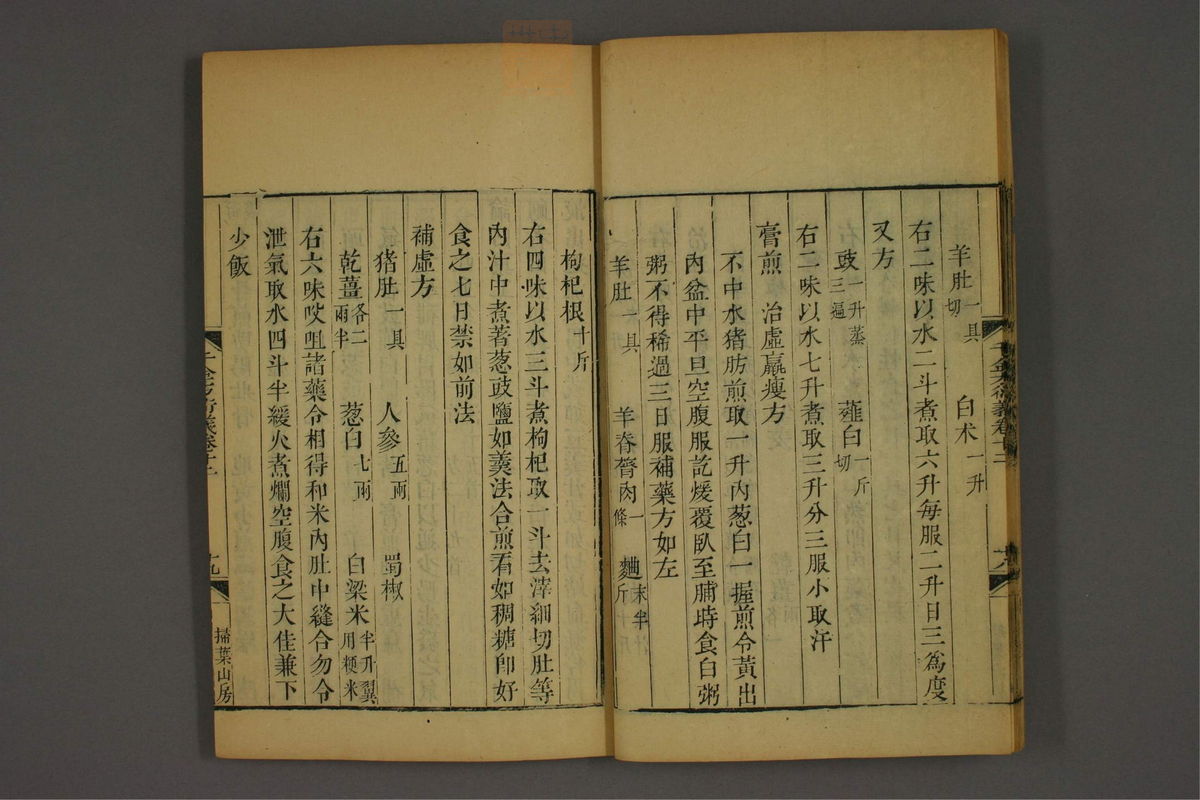 羊肚一具切 白术一升
右二味以水二斗煮取六升每服二升日三爲度
又方
豉一升蒸三遍 薤白一斤切
右二味以水七升煮取三升分三服小取汗
膏煎 治虛羸瘦方
不中水猪肪煎取一升內葱白一握煎令黃出
內盆中平旦空腹服訖煖覆臥至脯時食白粥
粥不得稀過三日服補藥方如左
羊肚一具 羊脊膂肉一條 麯末半斤
枸杞根十斤
右四味以水三斗煮枸杞取一斗去滓細切肚等
內汁中煮著葱豉鹽如羹法合煎看如稠糖卽好
食之七日禁如前法
補虛方
猪肚一具 人參五兩 蜀椒
乾薑各二兩半 葱白七兩 白粱米半升翼用粳米
右六味㕮咀諸藥令相得和米內肚中縫合勿令
泄氣取水四斗半緩火煮爛空腹食之大佳兼下
少飯
千金方衍義卷十二 十九
掃葉山房